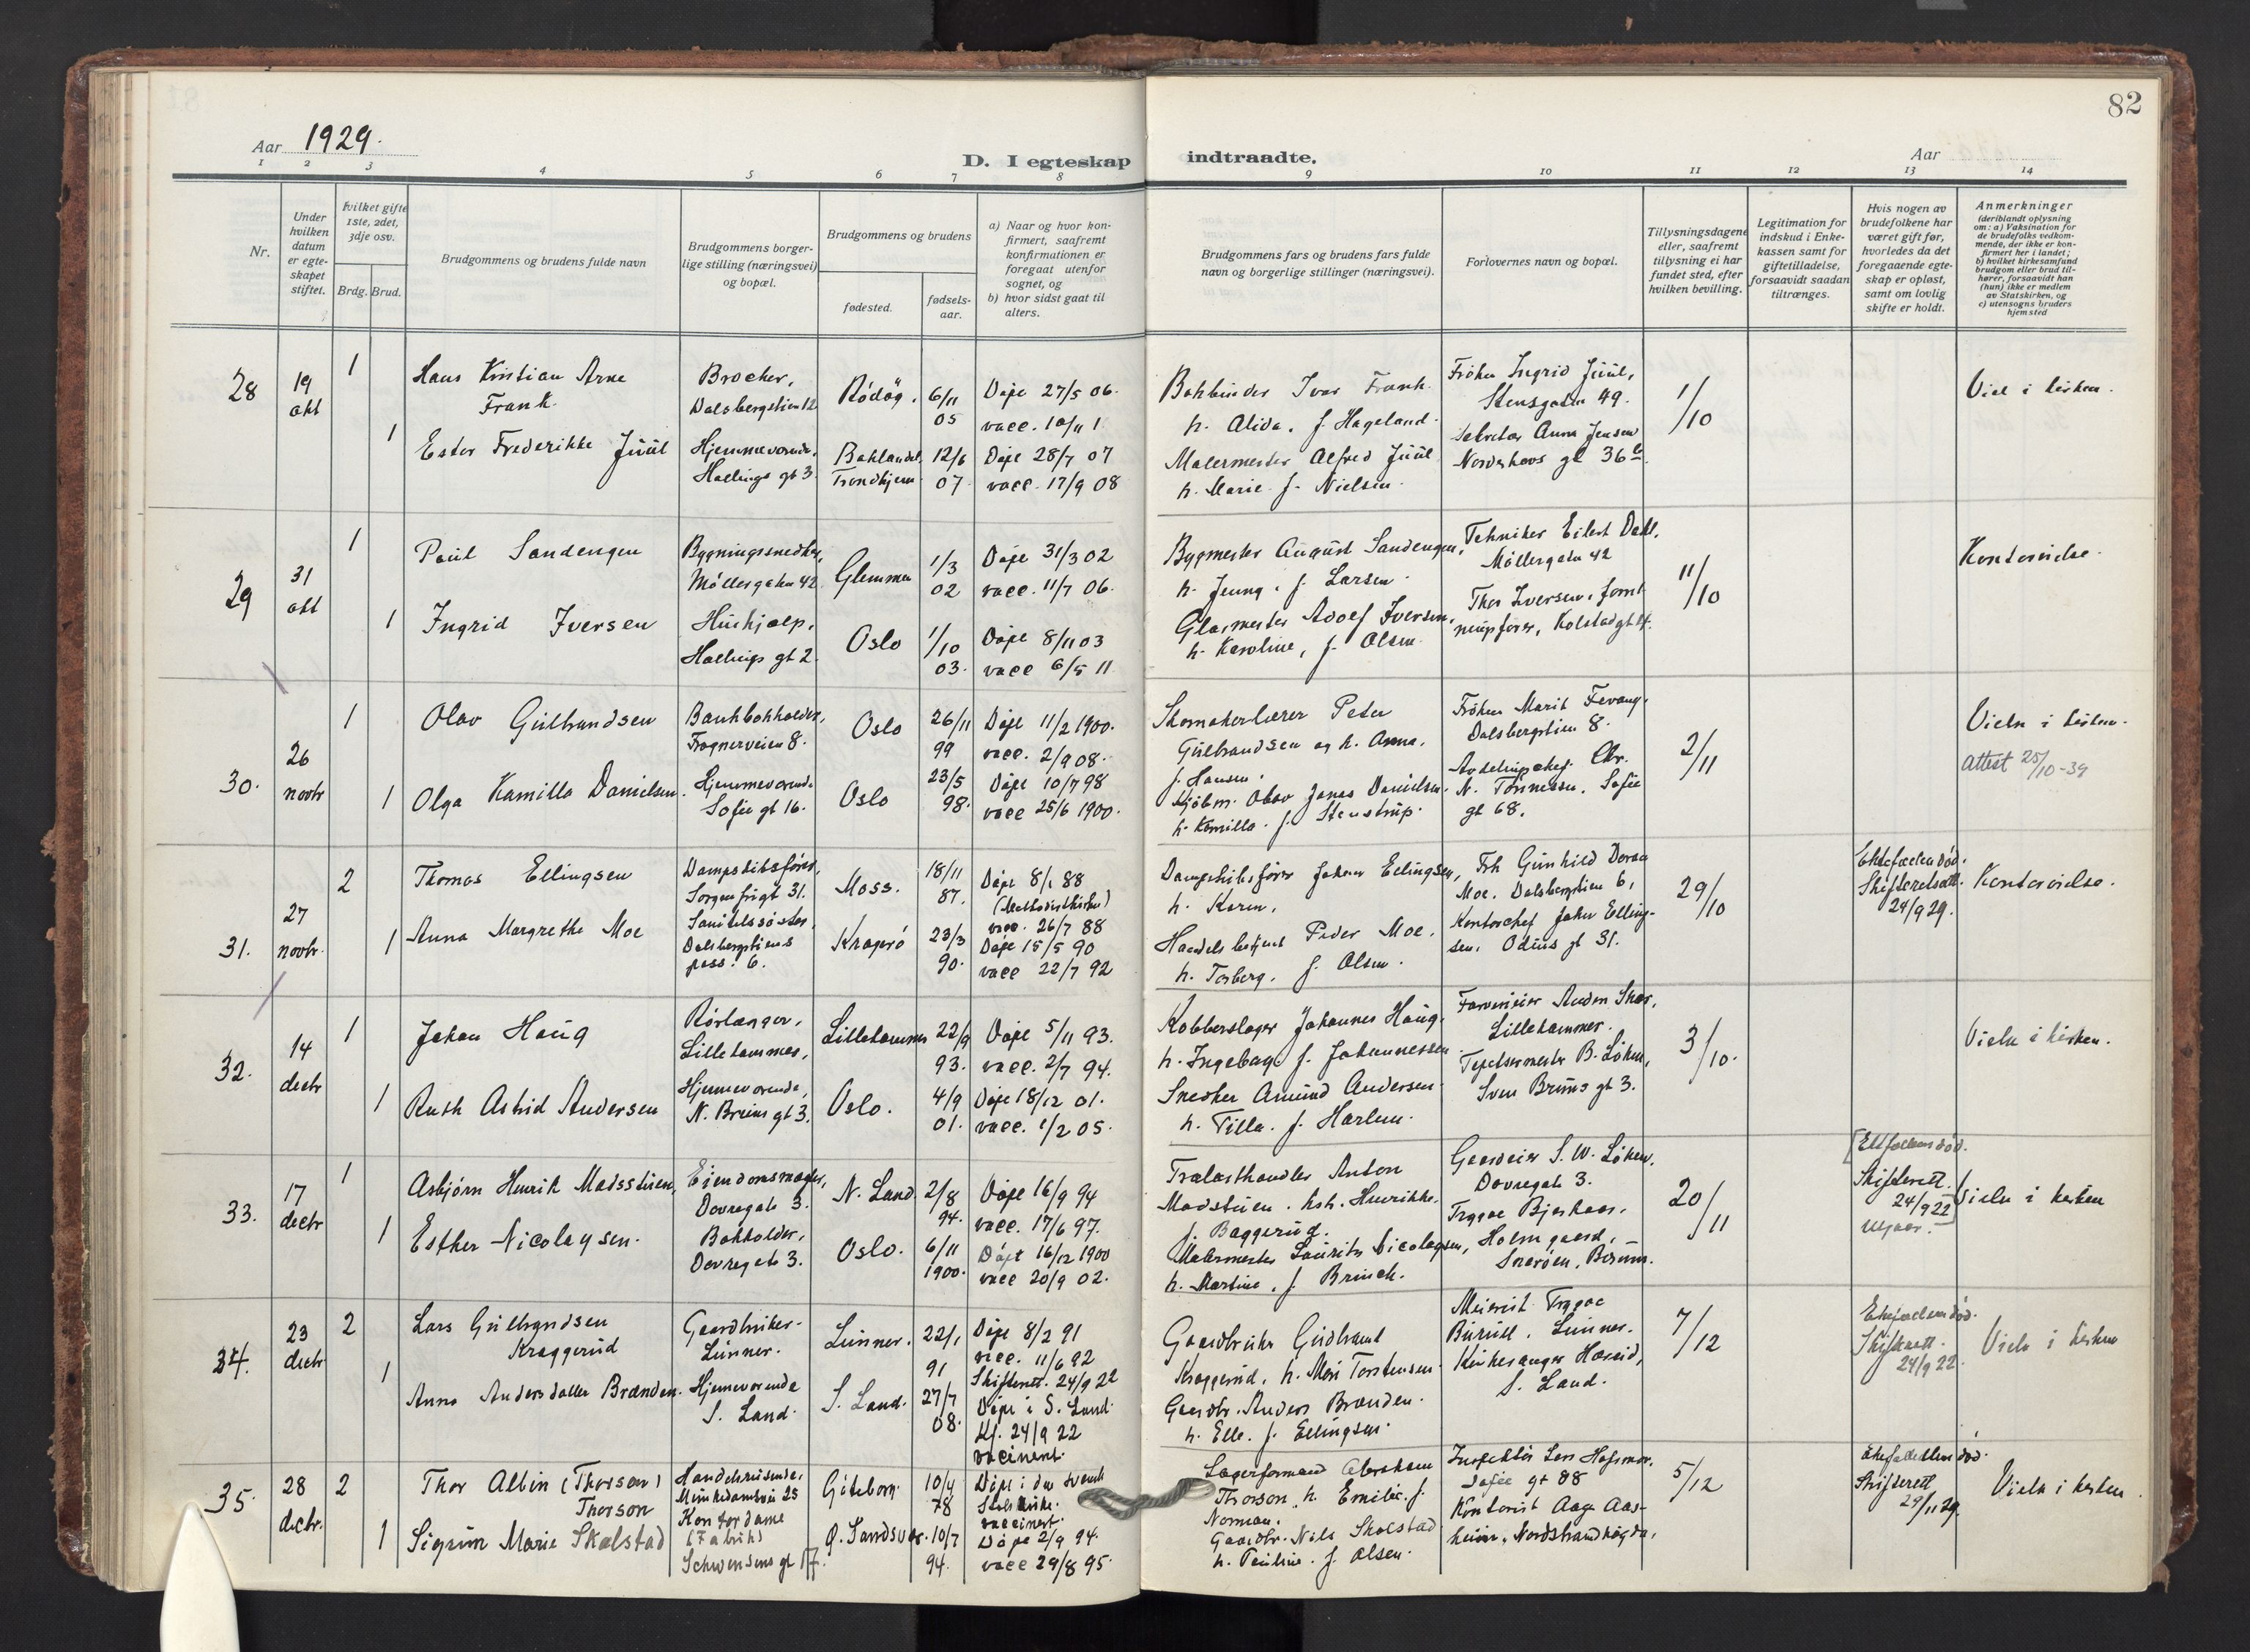 82
Aar 1929.
D. I egteskap indtraadte.
Aar
1 2 3 4 5 6 7 8 9 10 11 12 13 14
Nr.
Under
hvilken
datum
er egte-
skapet
stiftet.
hvilket gifte
1ste, 2det,
3dje osv.
Brdg. Brud.
Brudgommens og brudens fulde navn
Brudgommens borger-
lige stilling (næringsvei)
og bopæl.
Brudgommens og brudens
fødested.
fødsels-
aar.
a) Naar og hvor kon-
firmert, saafremt
konfirmationen er
foregaat utenfor
sognet, og
b) hvor sidst gaat til
alters.
Brudgommens fars og brudens fars fulde
navn og borgerlige stillinger (næringsvei).
Forlovernes navn og bopæl.
Tillysningsdagene
eller, saafremt
tillysning ei har
fundet sted, efter
hvilken bevilling.
Legitimation for
indskud i Enke-
kassen samt for
giftetilladelse,
forsaavidt saadan
tiltrænges.
Hvis nogen av
brudefolkene har
været gift før,
hvorledes da det
foregaaende egte-
skap er opløst,
samt om lovlig
skifte er holdt.
Anmerkninger
(deriblandt oplysning
om: a) Vaksination for
de brudefolks vedkom-
mende, der ikke er kon-
firmert her i landet;
b) hvilket kirkesamfund
brudgom eller brud til-
hører, forsaavidt han
(hun) ikke er medlem
av Statskirken, og
c) utensogns bruders
hjemsted
28
19
okt
1
Hans Kristian Arne
Frank.
Dalsbergstien 12
Rödöy.
6/11
05
Døpt 27/5 06.
vacc. 10/11 1
Bokbinder Ivar Frank
h. Alida, f. Hageland.
Frøken Ingrid Juul,
Stensgaten 49.
1/10
1
Ester Frederikke Juul
Hjemmevørende,
Hallings gt 3.
Baklandet,
Trondhjem
12/6
07.
Døpt 28/7 07
vacc. 17/9 08
Malermester Alfred Juul
h. Marie f. Nielsen.
Sekretær Anna Jensen
29
31
okt
1
Paul Sandengen
Bygningssnedker,
Møllergaten 42
Glemmen
1/3
02
Døpt 31/3 02
vacc. 11/7 06.
Bygmester August Sandengen,
h. Jenny, f. Larsen.
Tekniker Eilert Dahl,
Møllergaten 42
11/10
Kontorvielse.
1
Ingrid Iversen
Hushjælp,
Hallings gt 2.
Oslo
1/10
03.
Døpt 8/11 03
vacc 6/5 11
Glasmester Adolf Iversen,
h. Karoline, f. Olsen
Thor Iversen, forret-
ningsfører, Kolstadgt 14.
30.
26
novbr
1
Olav Gulbrandsen
Bankbokholder,
Frognerveien 8.
Oslo
26/11
99
Døpt 11/2 1900.
vacc. 2/9 08.
Skomakerlærer Peter
Gulbrandsen og h. Anna,
f. Hansen.
Frøken Marit Fevang,
Dalsbergstien 8.
2/11
Vielse i kirken.
Attest 25/10-39
1
Olga Kamilla Danielsen.
Hjemmevørende
Sofie gt 16.
Oslo
23/5
98.
Døpt 10/7 98
vacc 25/6 1900.
Kjøbm. Olav Jonas Danielsen.
h. Kamilla. f. Stenstrup.
Avdelingschef Chr.
N. Tønnessen. Sofie
gt 68.
31.
27
novbr.
2
Thomas Ellingsen
Dampskibsfører,
Sorgenfrigt 31.
Moss.
18/11
87.
Døpt 8/1 88
(Methodistkirken)
vacc. 26/7 88
Dampskibsfører Johan Ellingsen,
h. Karen.
Frk Gunhild Dorea
Moe, Dalsbergstien 6,
29/10
Ektefællen død.
Skifterettsatt.
24/9 29.
Kontorvielse.
1
Anna Margrethe Moe
Sanitetssøster,
Dalsbergstiens
pass. 6.
Kragerø
23/3
90.
Døpt 15/5 90
vacc 22/7 92
Handelsbetjent Peder Moe.
h. Torberg. f. Olsen.
Kontorchef John Elling-
sen, Odins gt 31.
32.
14
decbr
1
Johan Haug
Rørlægger,
Lillehammer,
Lillehammer
22/9
93.
Døpt 5/11 93.
vacc. 2/7 94.
Kobberslager Johannes Haug.
h. Ingeborg f. Johannessen
Lillehammer.
3/10.
Vielse i kirken.
1
Ruth Astrid Andersen
Hjemmevørende,
Oslo.
4/9
01.
Døpt 18/12 01.
vacc. 1/2 05.
Snedker Amund Andersen
h. Tilla. f. Harlem.
Tapetsermester B. Løken,
Sven Bruns gt 3.
33.
17
decbr
1
Asbjørn Henrik Madsstuen,
Eiendomsmægler,
Dovregate 3.
N. Land
2/8
94.
Døpt 16/9 94
vacc. 17/6 97.
Trælasthandler Anton
Madstuen. h. Henrikke
f. Baggerud.
Gaardeier S. W. Løken,
Dovregate 3.
20/11
[Ektfællen død.
Skifterett.
24/9 22]
utgaar.
Vielse i kirken
1
Esther Nicolaysen.
Bokholder,
Dovregate 3.
Oslo.
6/11
1900.
Døpt 16/12 1900
vacc 20/9 02.
Malermester Laurits Nicolaysen,
h. Martine, f. Brinch.
Trygve Bjerkaas,
Holmgaard,
Snarøen, Bærum.
34.
23
decbr
2
Lars Gulbrandsen
Kraggerud
Gaardbruker
Lunner.
Lunner.
22/1
91
Døpt 8/2 91
vacc. 11/6 92
Skifterett. 24/9 22
Gaardbruker Gudbrand
Kraggerud, h. Mari Torstensen
Meierist Trygve
Bururud, Lunner.
7/12
Ektefællen død.
Skifterett.
24/9 22.
Vielse i kirken
1
Anna Andersdatter Brænden.
Hjemmevørende
S. Land.
S. Land.
27/7
08.
Døpt i S. Land
Kf. 24/9 22
vaccinert.
Gaardbr. Anders Brænden.
h. Elle. f. Ellingsen.
Kirkesanger Hareid,
S. Land.
35.
28
decbr.
2
Thor Albin (Thorsen)
Thorson
Handelsreisende,
Munkedamsvei 25
Göteborg.
10/4
78
Døpt i den svensk
Statskirke.
vaccinert.
Lagerformand Abraham
Thorson, h. Emilie f.
Norman.
Sofie gt 88
5/12
Ektefællen død.
Skifterett
29/11 29.
Vielse i kirken.
1
Sigrun Marie Skalstad
Kontordame
(Fabrik)
Schwensens gt 17.
Ø. Sandsvær.
10/7
94.
Døpt 2/9 94.
vacc 29/8 95.
Gaardbr. Nils Skalstad
h. Pauline. f. Olsen.
Kontorist Aage Aas-
heim, Nordstrandhøgda.